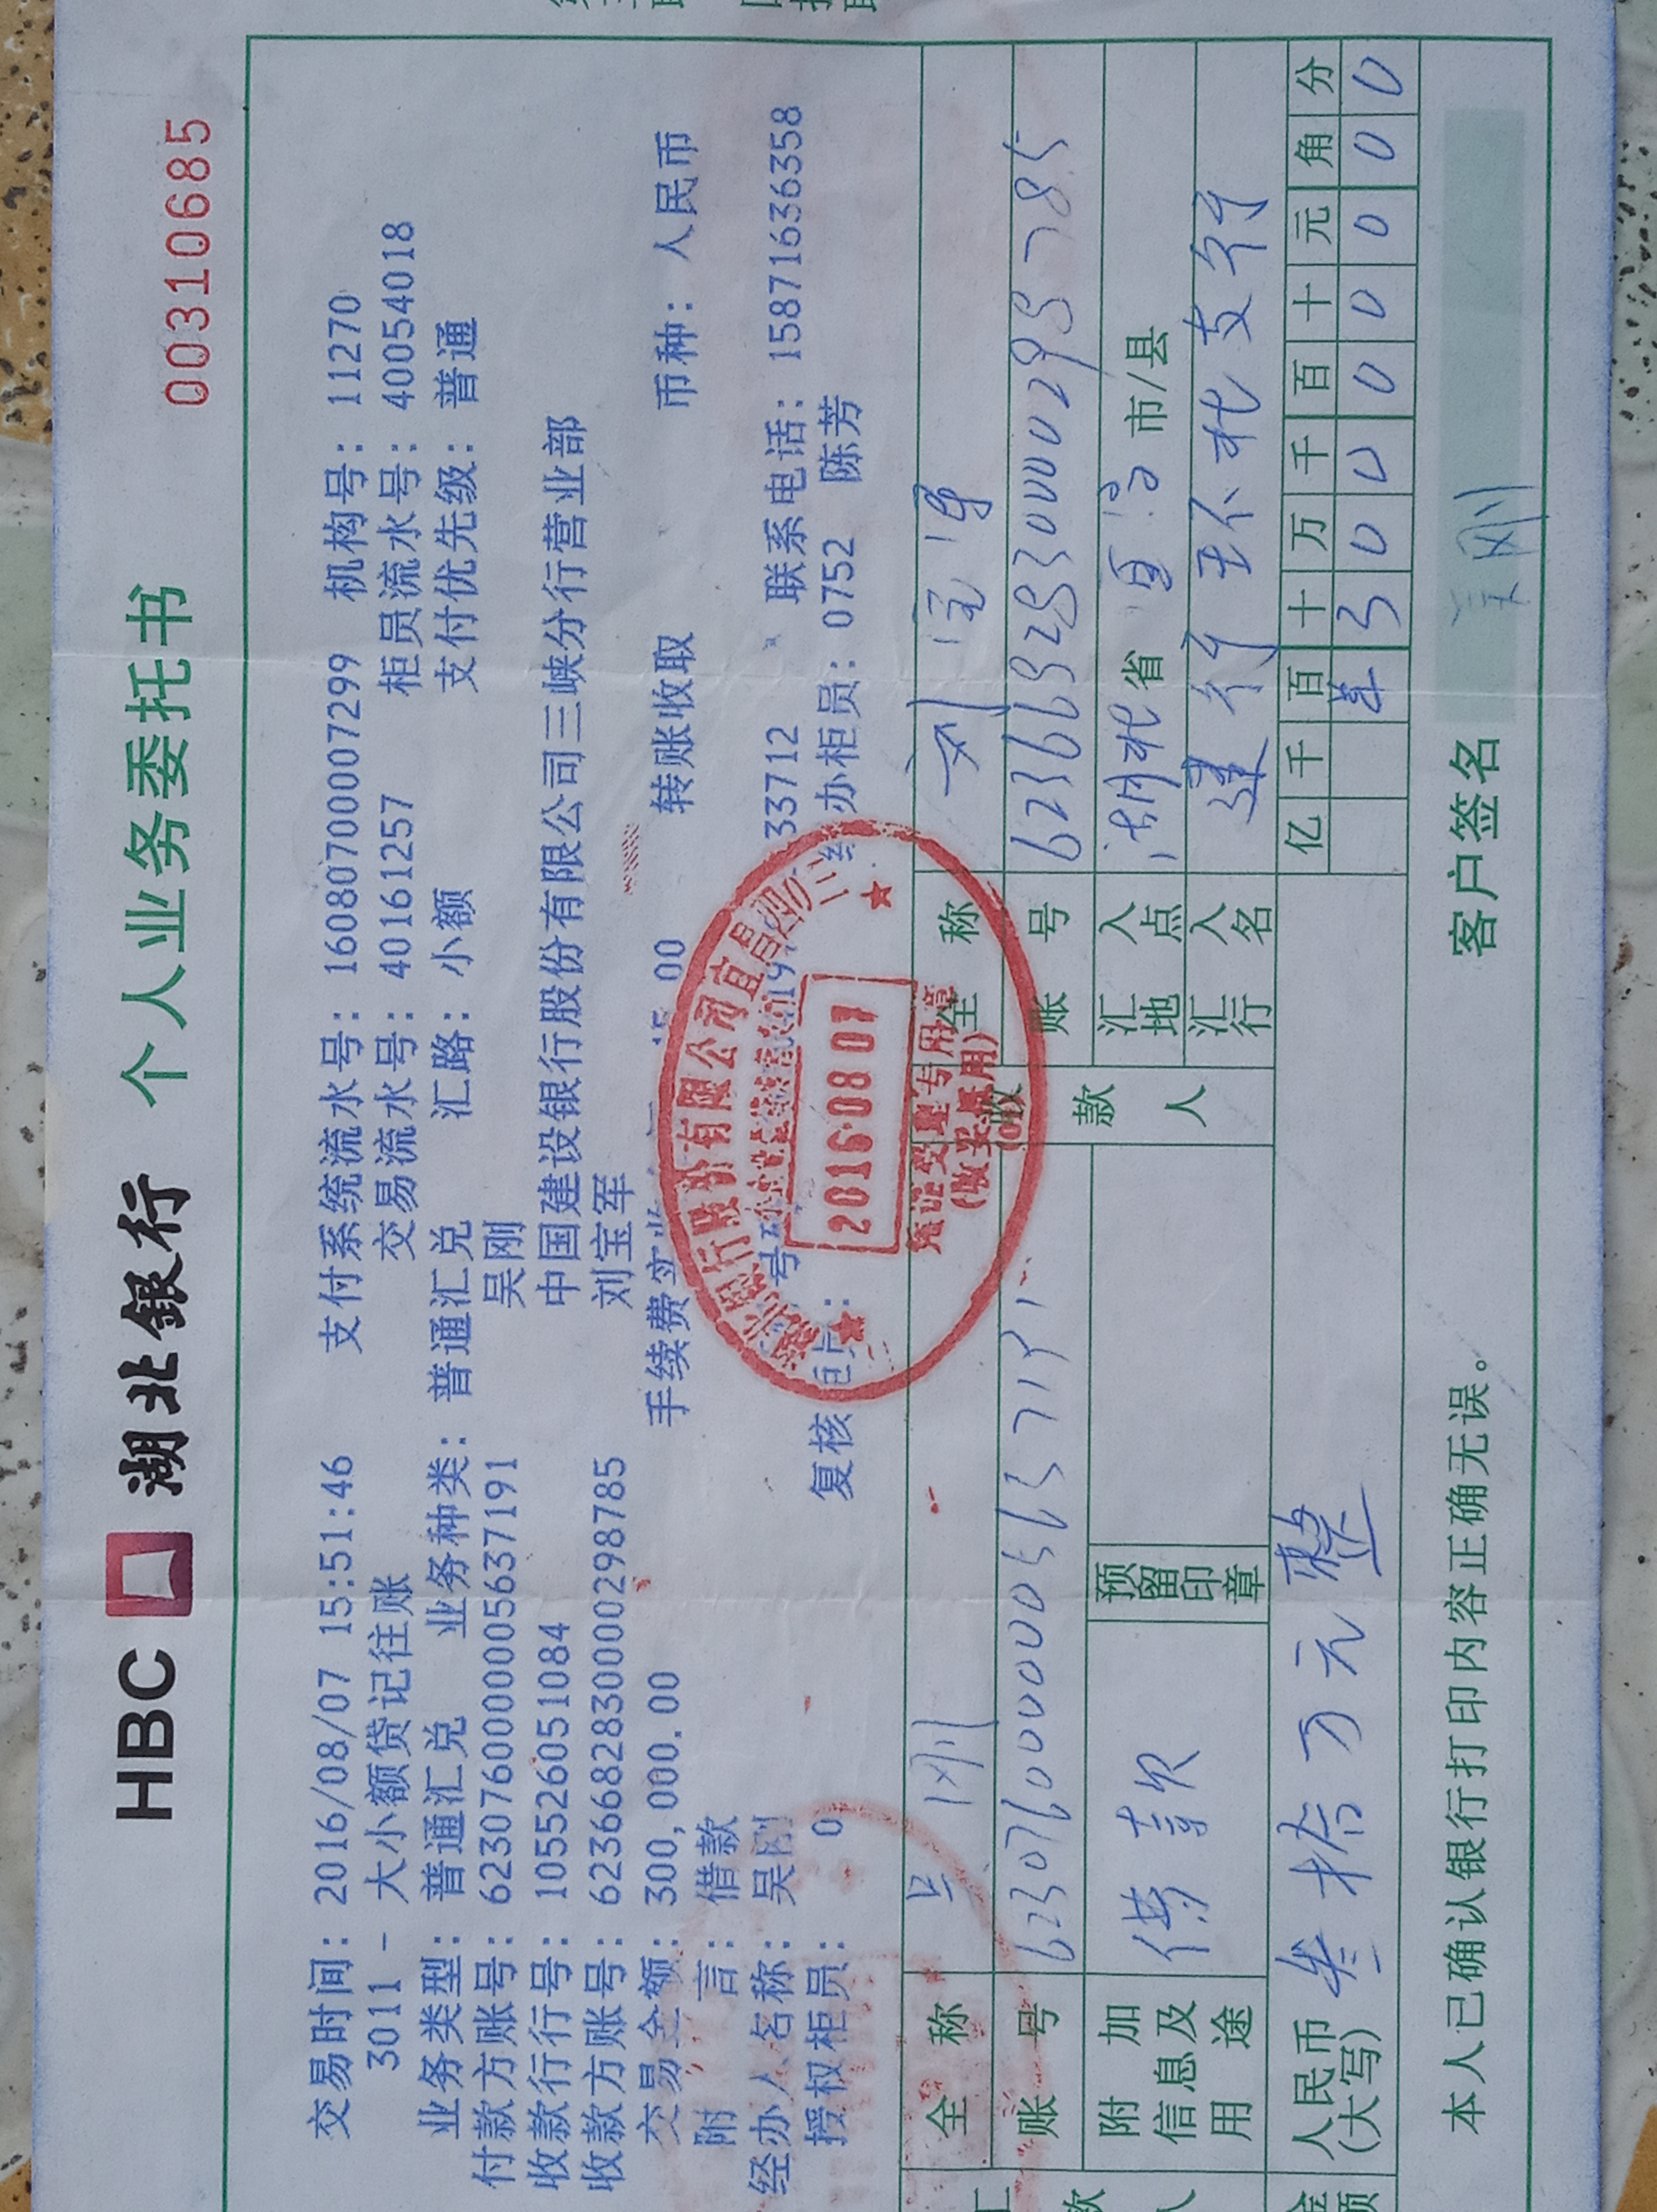 HBC 湖北银行 个人业务委托书 00310685
交易时间：2016/08/07 15:51:46 支付系统流水号：1608070000007299 机构号：11270
3011 - 大小额贷记往账 交易流水号：40161257 柜员流水号：40054018
业务类型：普通汇兑 业务种类：普通汇兑 汇路：小额 支付优先级：普通
付款方账号：6230760000005637191 吴刚
收款行行号：105526051084 中国建设银行股份有限公司三峡分行营业部
收款方账号：6236682830000298785 刘宝军
交易金额：300,000.00 手续费 00 转账收取 币种：人民币
附言：借款
经办人名称：吴刚 33712 联系电话：15871636358
授权柜员：0 复核 办柜员：0752 陈芳
银行股份有限公司宜昌
20160807
凭证受理专用章
(收妥抵用)
全称 吴刚 收款人 全称 刘宝军
账号 6230760000005637191 账号 6236682830000298785
附加信息及用途 借款 预留印章 汇入地点 湖北省宜昌市/县
汇入行名 建行环北支行
人民币(大写) 叁拾万元整 亿千百十万千百十元角分
¥ 3 0 0 0 0 0 0 0
本人已确认银行打印内容正确无误。 客户签名 吴刚